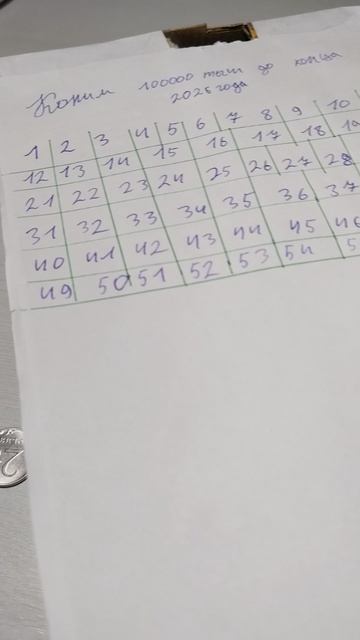 Копим 100000 тыщ до конца
2026 года
1 2 3 4 5 6 7 8 9 10
12 13 14 15 16 17 18 19
21 22 23 24 25 26 27 28
31 32 33 34 35 36 37
40 41 42 43 44 45 46
49 50 51 52 53 54 5
2